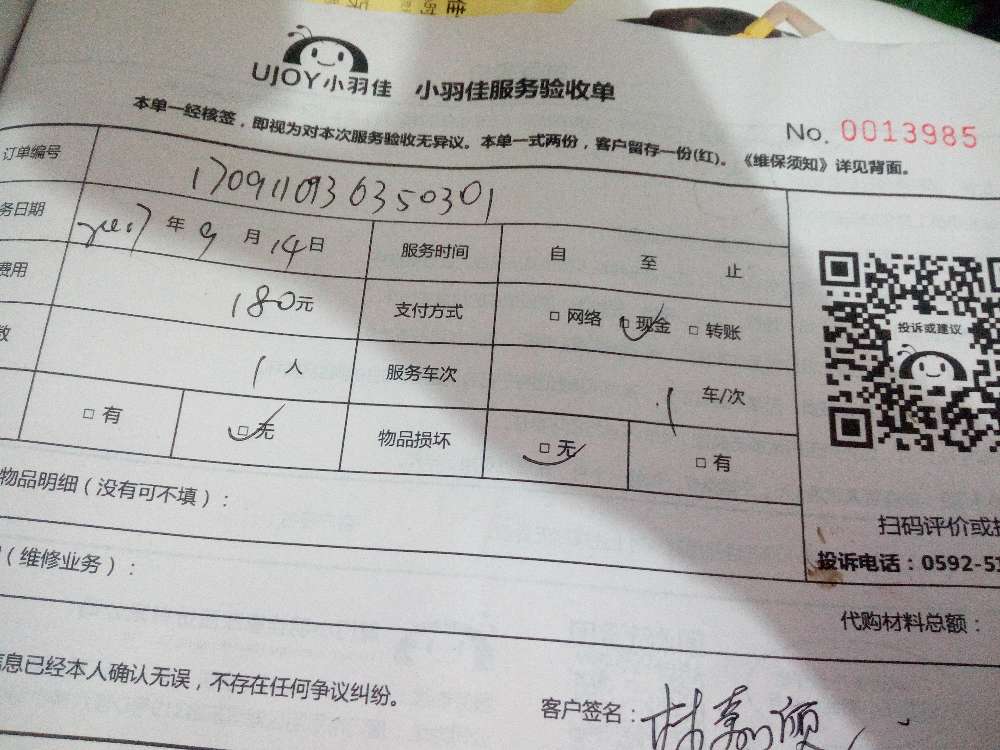 UJOY小羽佳 小羽佳服务验收单
本单一经核签，即视为对本次服务验收无异议。本单一式两份，客户留存一份(红)。《维保须知》详见背面。
No. 0013985
订单编号 1709110936350301
务日期 2017年9月14日 服务时间 自 至 止
费用 180元 支付方式 □ 网络 □ 现金 □ 转账
数 1人 服务车次 1 车/次
□ 有 □ 无 物品损坏 □ 无 □ 有
投诉或建议
物品明细（没有可不填）：
扫码评价或
（维修业务）：
投诉电话：0592-5
代购材料总额：
信息已经本人确认无误，不存在任何争议纠纷。
客户签名：林嘉